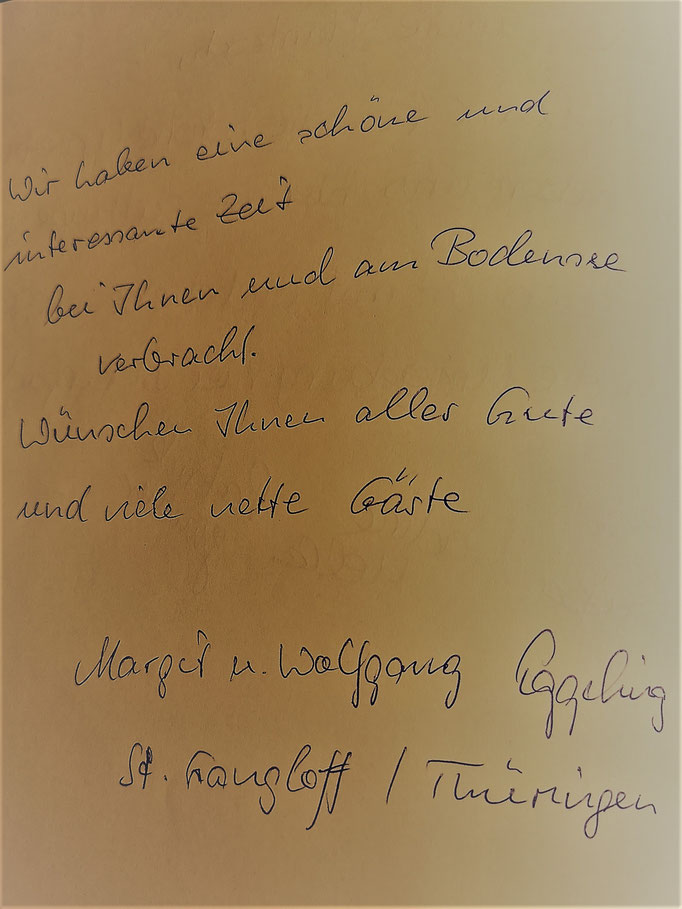 Wir haben eine schöne und
interessante Zeit
bei Ihnen und am Bodensee
verbracht.
Wünschen Ihnen alles Gute
und viele nette Gäste
Margit u. Wolfgang Eggeling
St. Gangloff / Thüringen